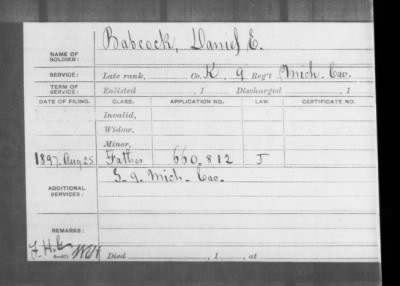 NAME OF SOLDIER: Babcock, Daniel E.
SERVICE: Late rank, Co. K, 9 Reg't Mich. Cav.
TERM OF SERVICE: Enlisted , 1 Discharged , 1
DATE OF FILING. CLASS. APPLICATION NO. LAW. CERTIFICATE NO.
Invalid,
Widow,
Minor,
1897. Aug 25 Father 660.812 J
ADDITIONAL SERVICES: 9. Mich. Cav.
REMARKS:
Died , 1 , at